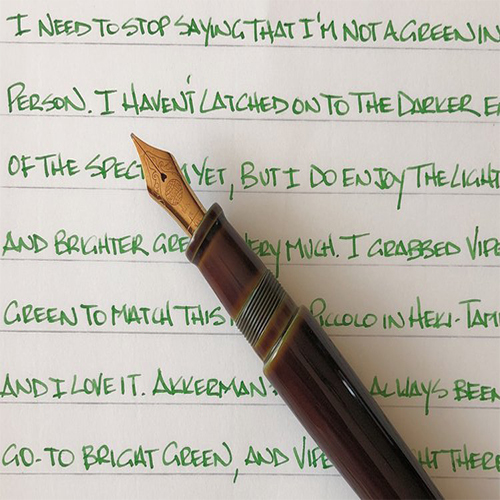 I NEED TO STOP SAYING THAT I'M NOT A GREEN IN
PERSON. I HAVEN'T LATCHED ON TO THE DARKER E
OF THE SPECT YET, BUT I DO ENJOY THE LIGHT
AND BRIGHTER GRE VERY MUCH. I GRABBED VIPE
GREEN TO MATCH THIS PICCOLO IN HEKI-TAM
AND I LOVE IT. AKKERMAN ALWAYS BEEN
GO-TO BRIGHT GREEN, AND VIPE HT THERE